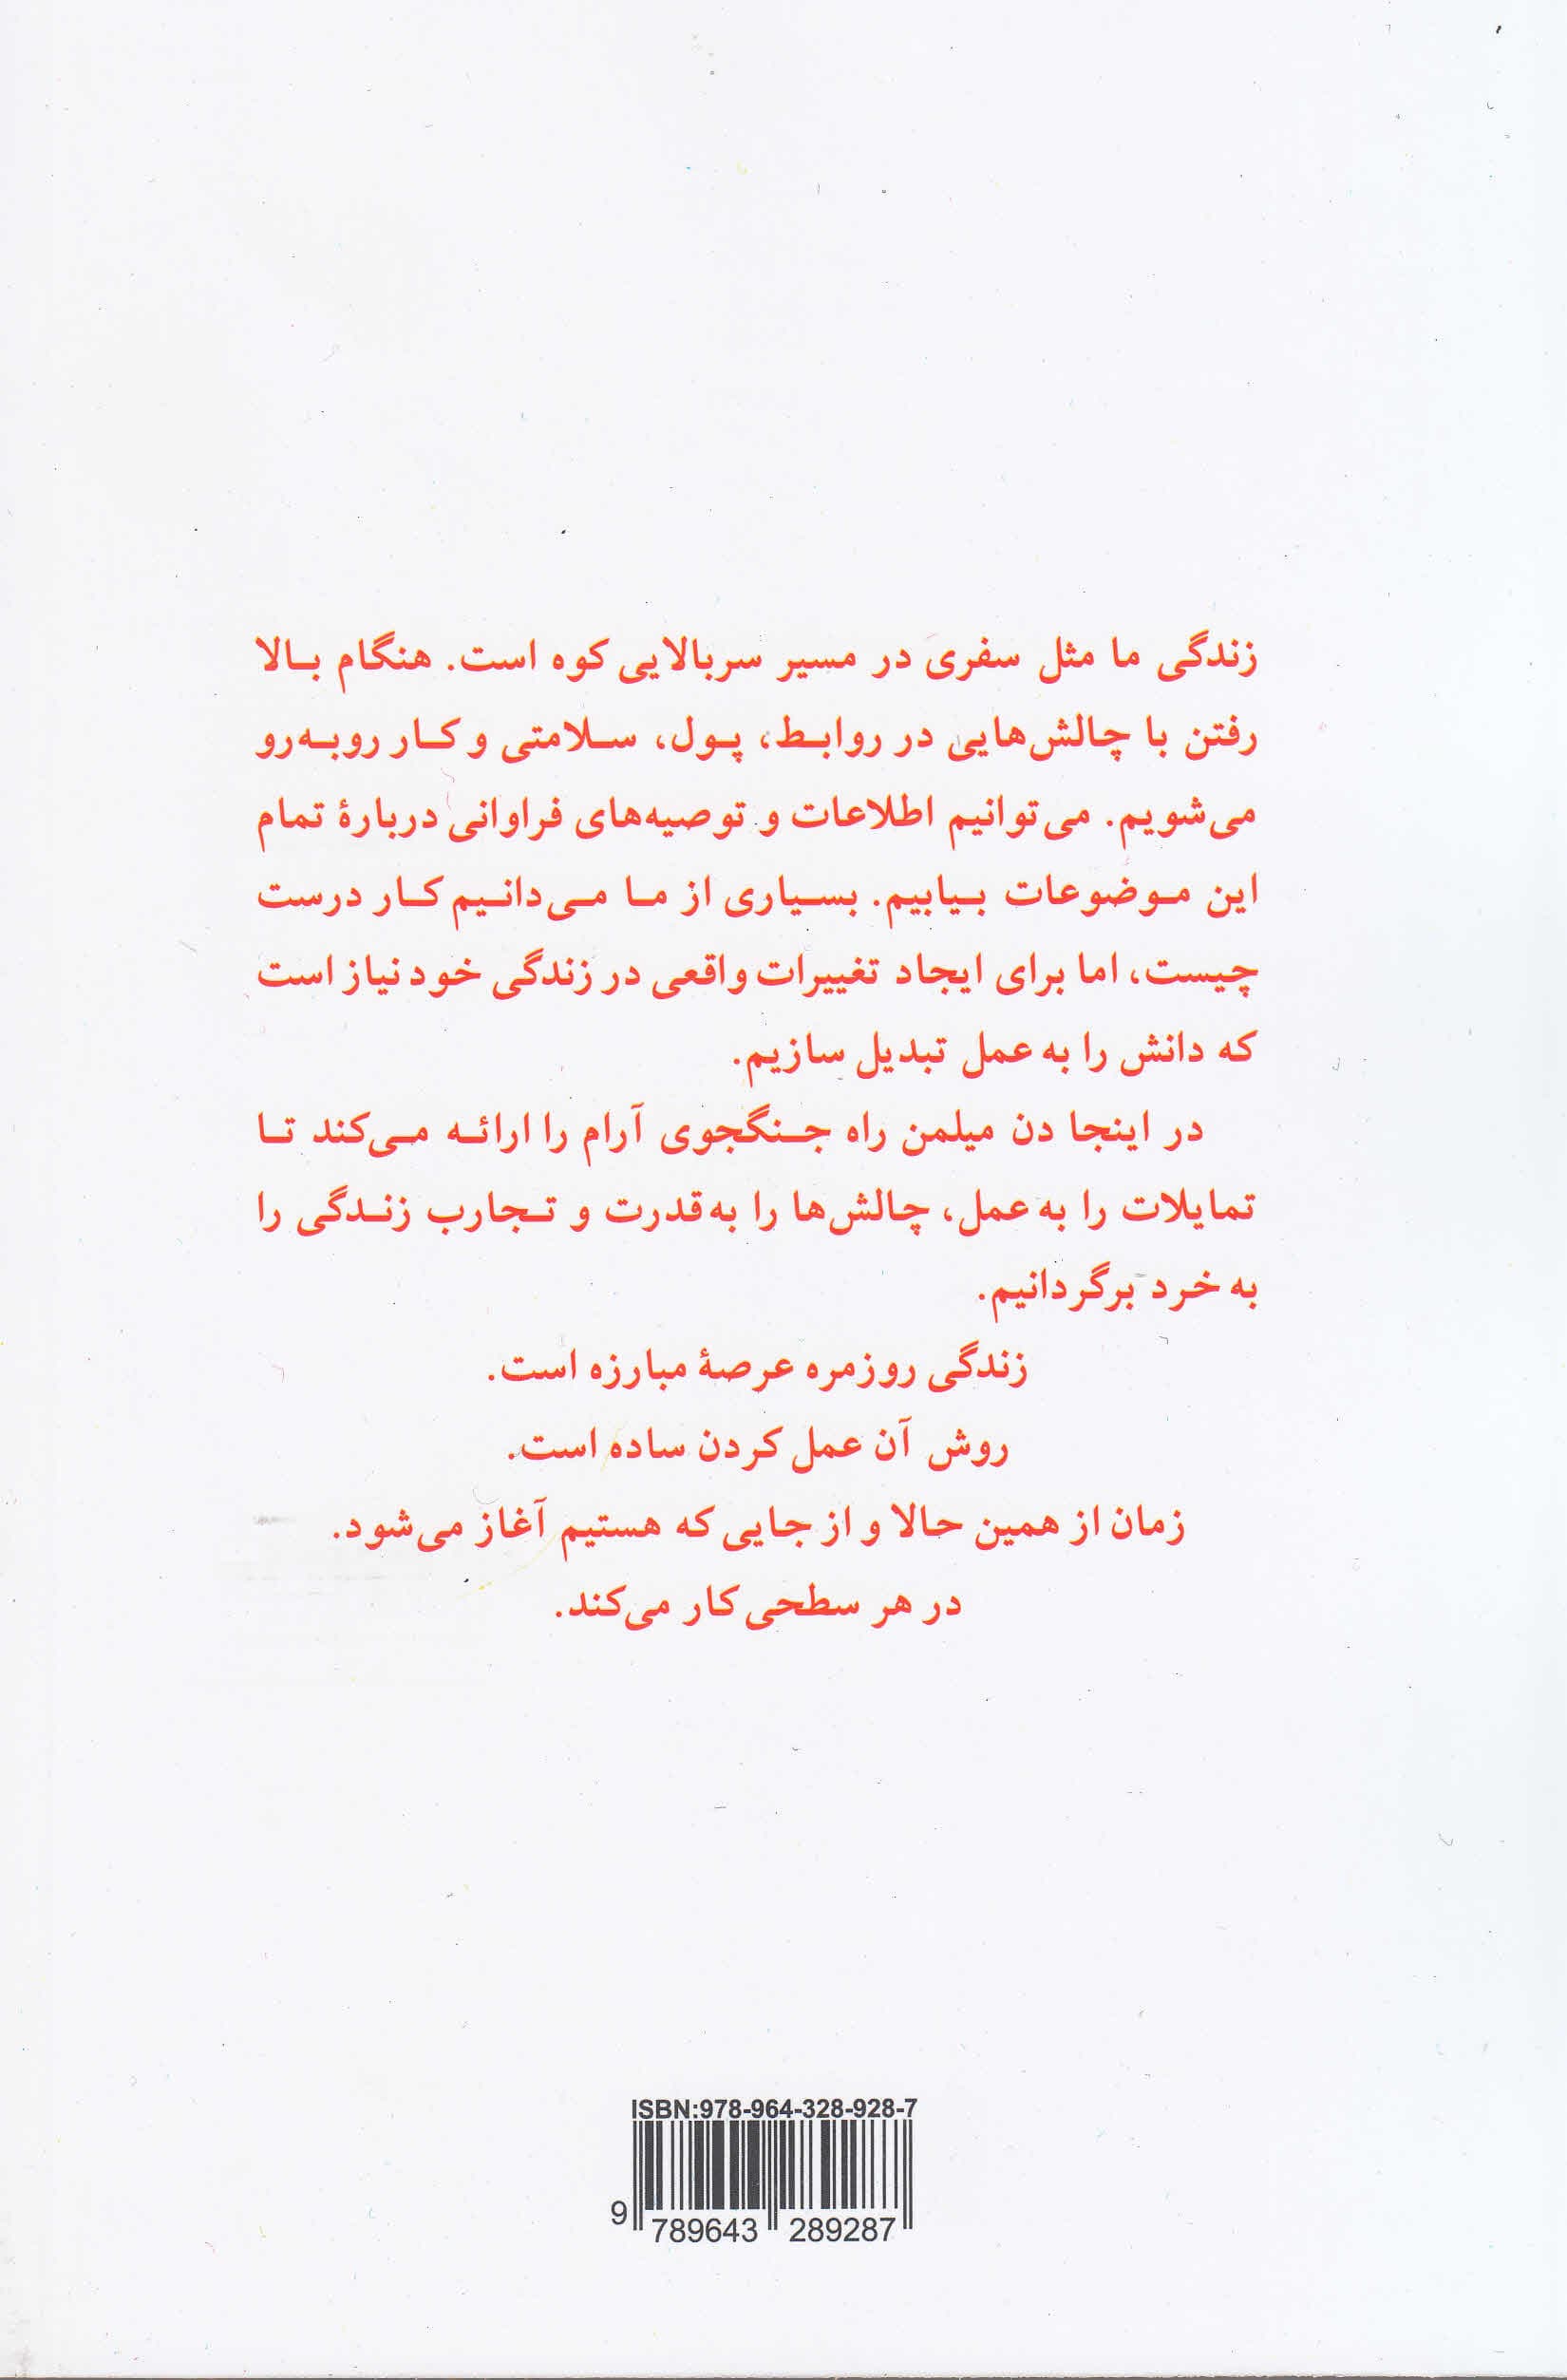 زندگی ما مثل سفری در مسیر سربالایی کوه است. هنگام بالا
رفتن با چالش‌هایی در روابط، پول، سلامتی و کار روبه‌رو
می‌شویم. می‌توانیم اطلاعات و توصیه‌های فراوانی دربارهٔ تمام
این موضوعات بیابیم. بسیاری از ما می‌دانیم کار درست
چیست، اما برای ایجاد تغییرات واقعی در زندگی خود نیاز است
که دانش را به عمل تبدیل سازیم.
در اینجا دن میلمن راه جنگجوی آرام را ارائه می‌کند تا
تمایلات را به عمل، چالش‌ها را به قدرت و تجارب زندگی را
به خرد برگردانیم.
زندگی روزمره عرصهٔ مبارزه است.
روش آن عمل کردن ساده است.
زمان از همین حالا و از جایی که هستیم آغاز می‌شود.
در هر سطحی کار می‌کند.
ISBN:978-964-328-928-7
9 789643 289287